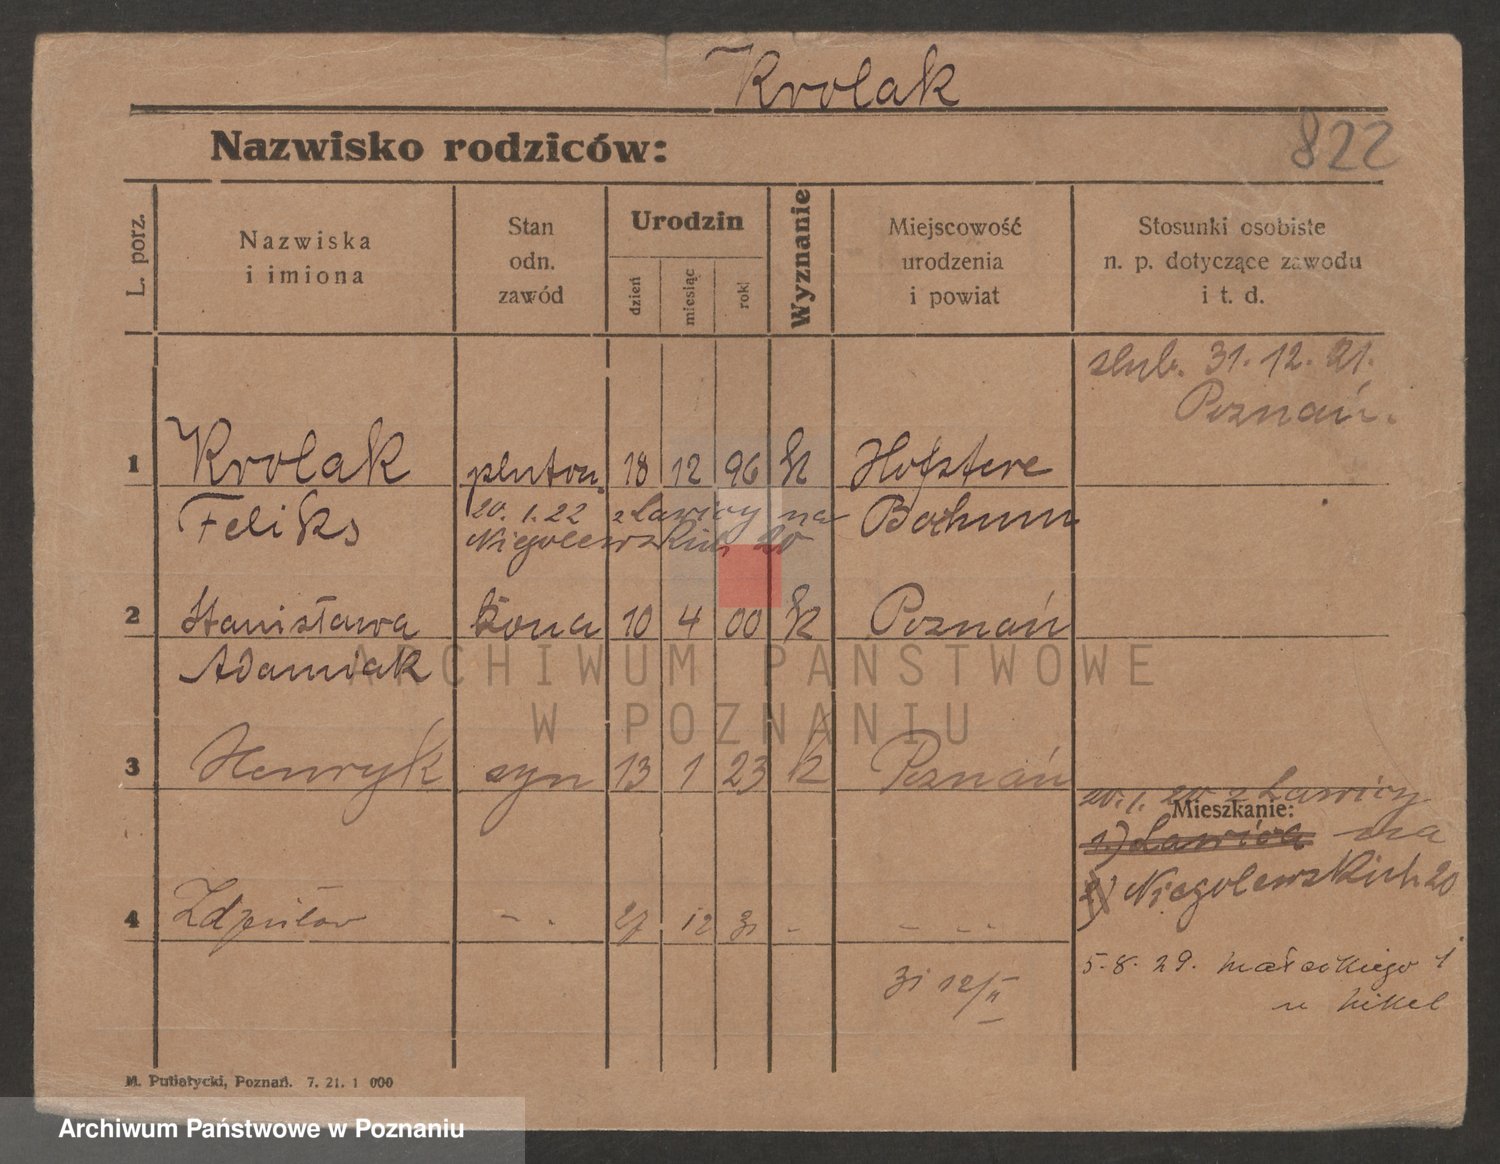 Krolak
822
Nazwisko rodziców:
L. porz.
Nazwiska
i imiona
Stan
odn.
zawód
Urodzin
dzień
miesiąc
rok
Wyznanie
Miejscowość
urodzenia
i powiat
Stosunki osobiste
n. p. dotyczące zawodu
i t. d.
slub. 31. 12. 21.
Poznań.
1 Krolak pluton. 18 12 96 k Hofstere
Feliks 20. 1. 22 z Ławicy na Bochum
Niegolewskich 20
2 Stanisława żona 10 4 00 k Poznań
Adamiak
3 Henryk syn 13 1 23 k Poznań
20. 1. 20 z Ławicy
Mieszkanie:
1) Ławica na
2) Niegolewskich 20
4 - . 12 31 - - - -
5. 8. 29. Małeckiego 1
u Nikel
31 12/II
M. Putiatycki, Poznań. 7. 21. 1 000
ARCHIWUM PAŃSTWOWE
W POZNANIU
Archiwum Państwowe w Poznaniu